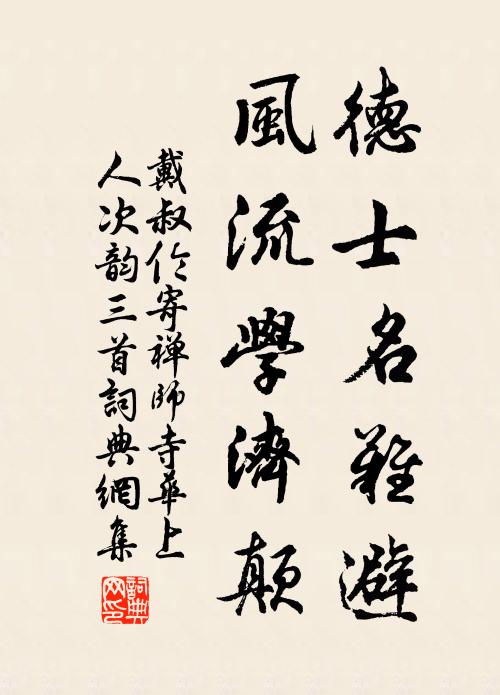 德士名難避
風流學濟顛
戴叔伦寄禅師寺華上
人次韵三首詞典網集
詞典
网印